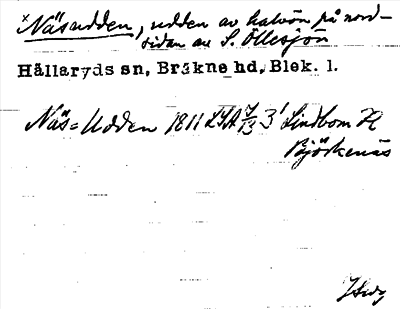 × Näsudden, udden av halvön på nord-
sidan av S. Öllesjön
Hällaryds sn, Bräkne hd, Blek. l.
Näs=Udden 1811 LSA 7/13 3¹ Lindbom H
Björkenäs